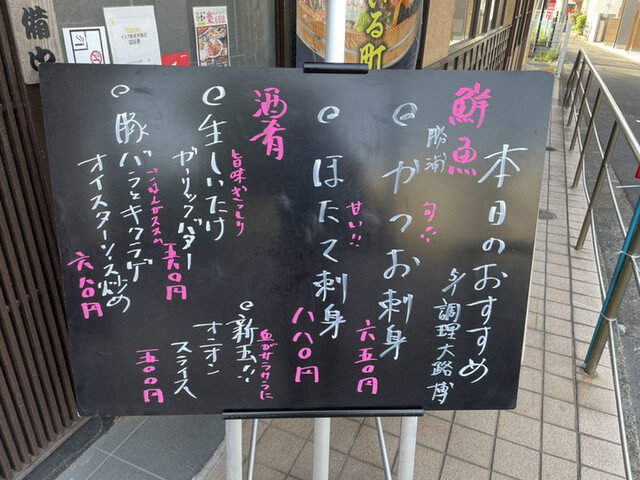 本日のおすすめ
調理大路博
鮮魚
勝浦
かつお刺身
旬!!
六五〇円
ほたて刺身
甘い!!
八八〇円
酒肴
生しいたけ
旨味ぎっしり
ガーリックバター
五五〇円
新玉!!
血がサラサラに
オニオン
スライス
五〇〇円
豚バラとキクラゲ
ごはんがススム
オイスターソース炒め
六六〇円
備中
いる町